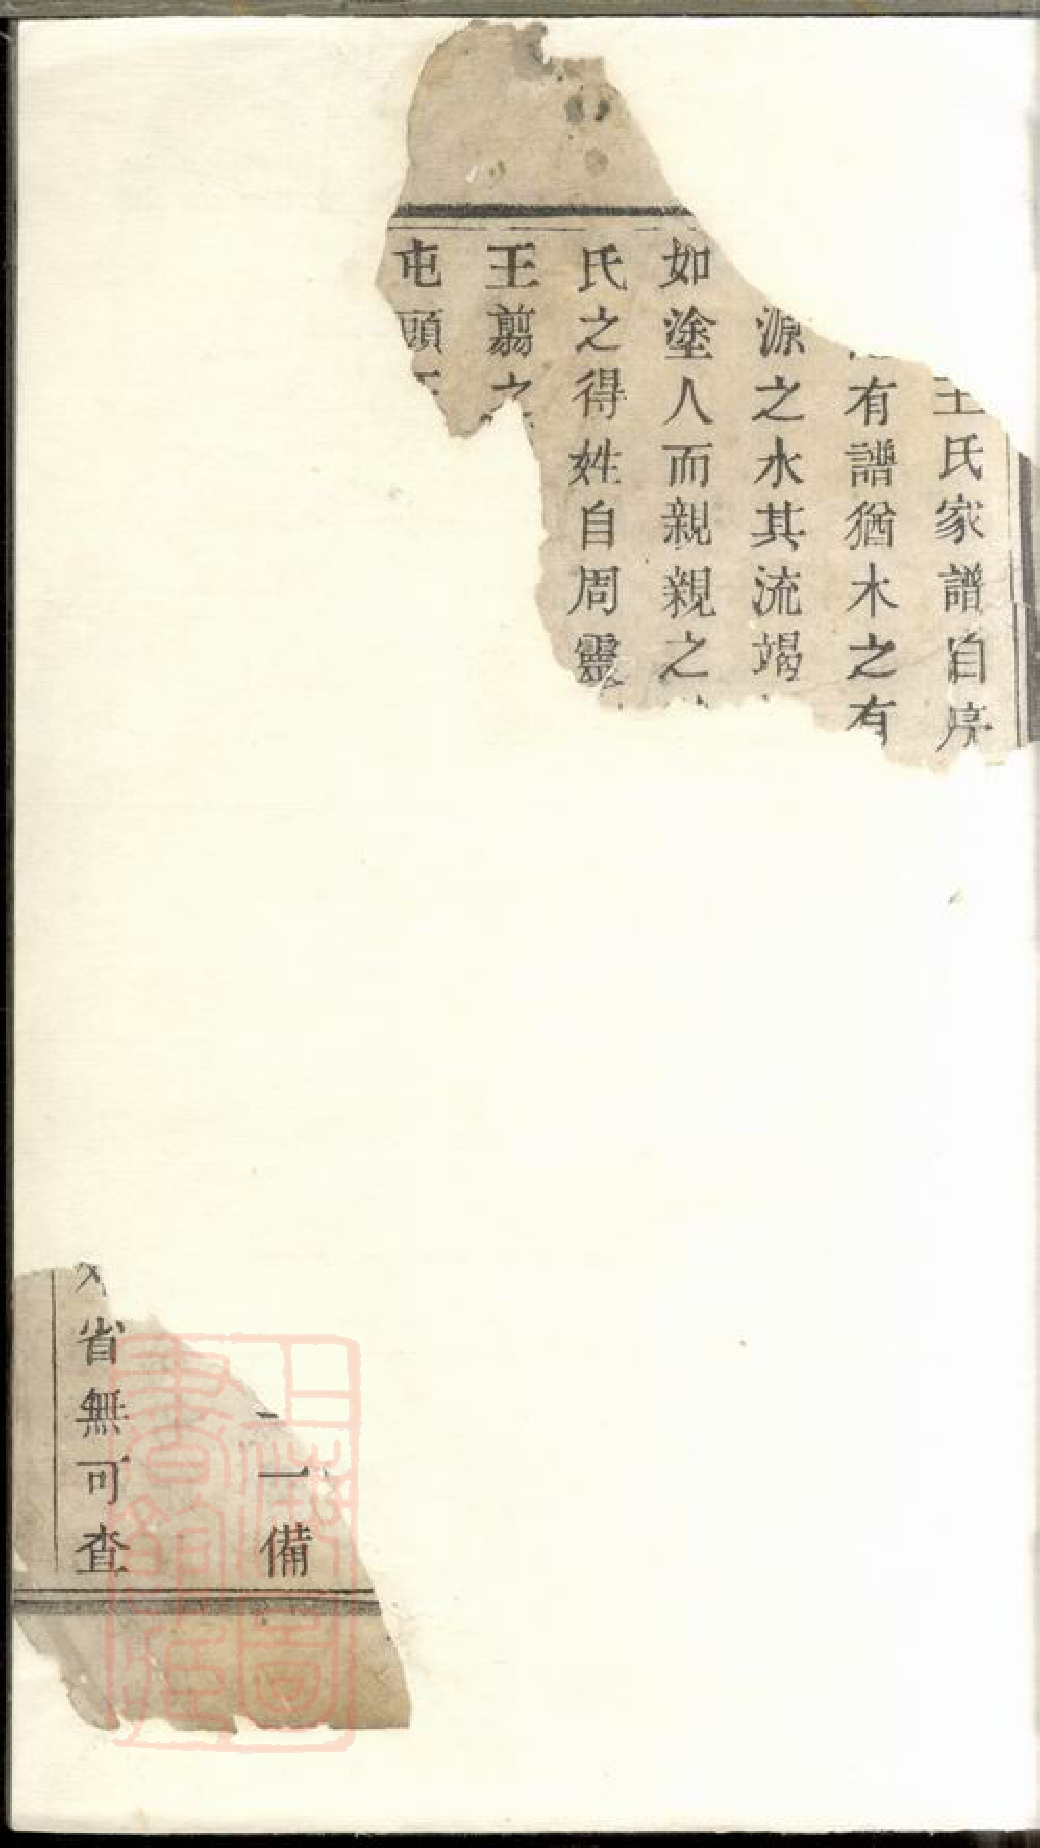 王氏家譜自序
有譜猶木之有
源之水其流竭
如塗人而親親之
氏之得姓自周靈
王翦之
屯頭王
一備
省無可查
上海圖書館藏